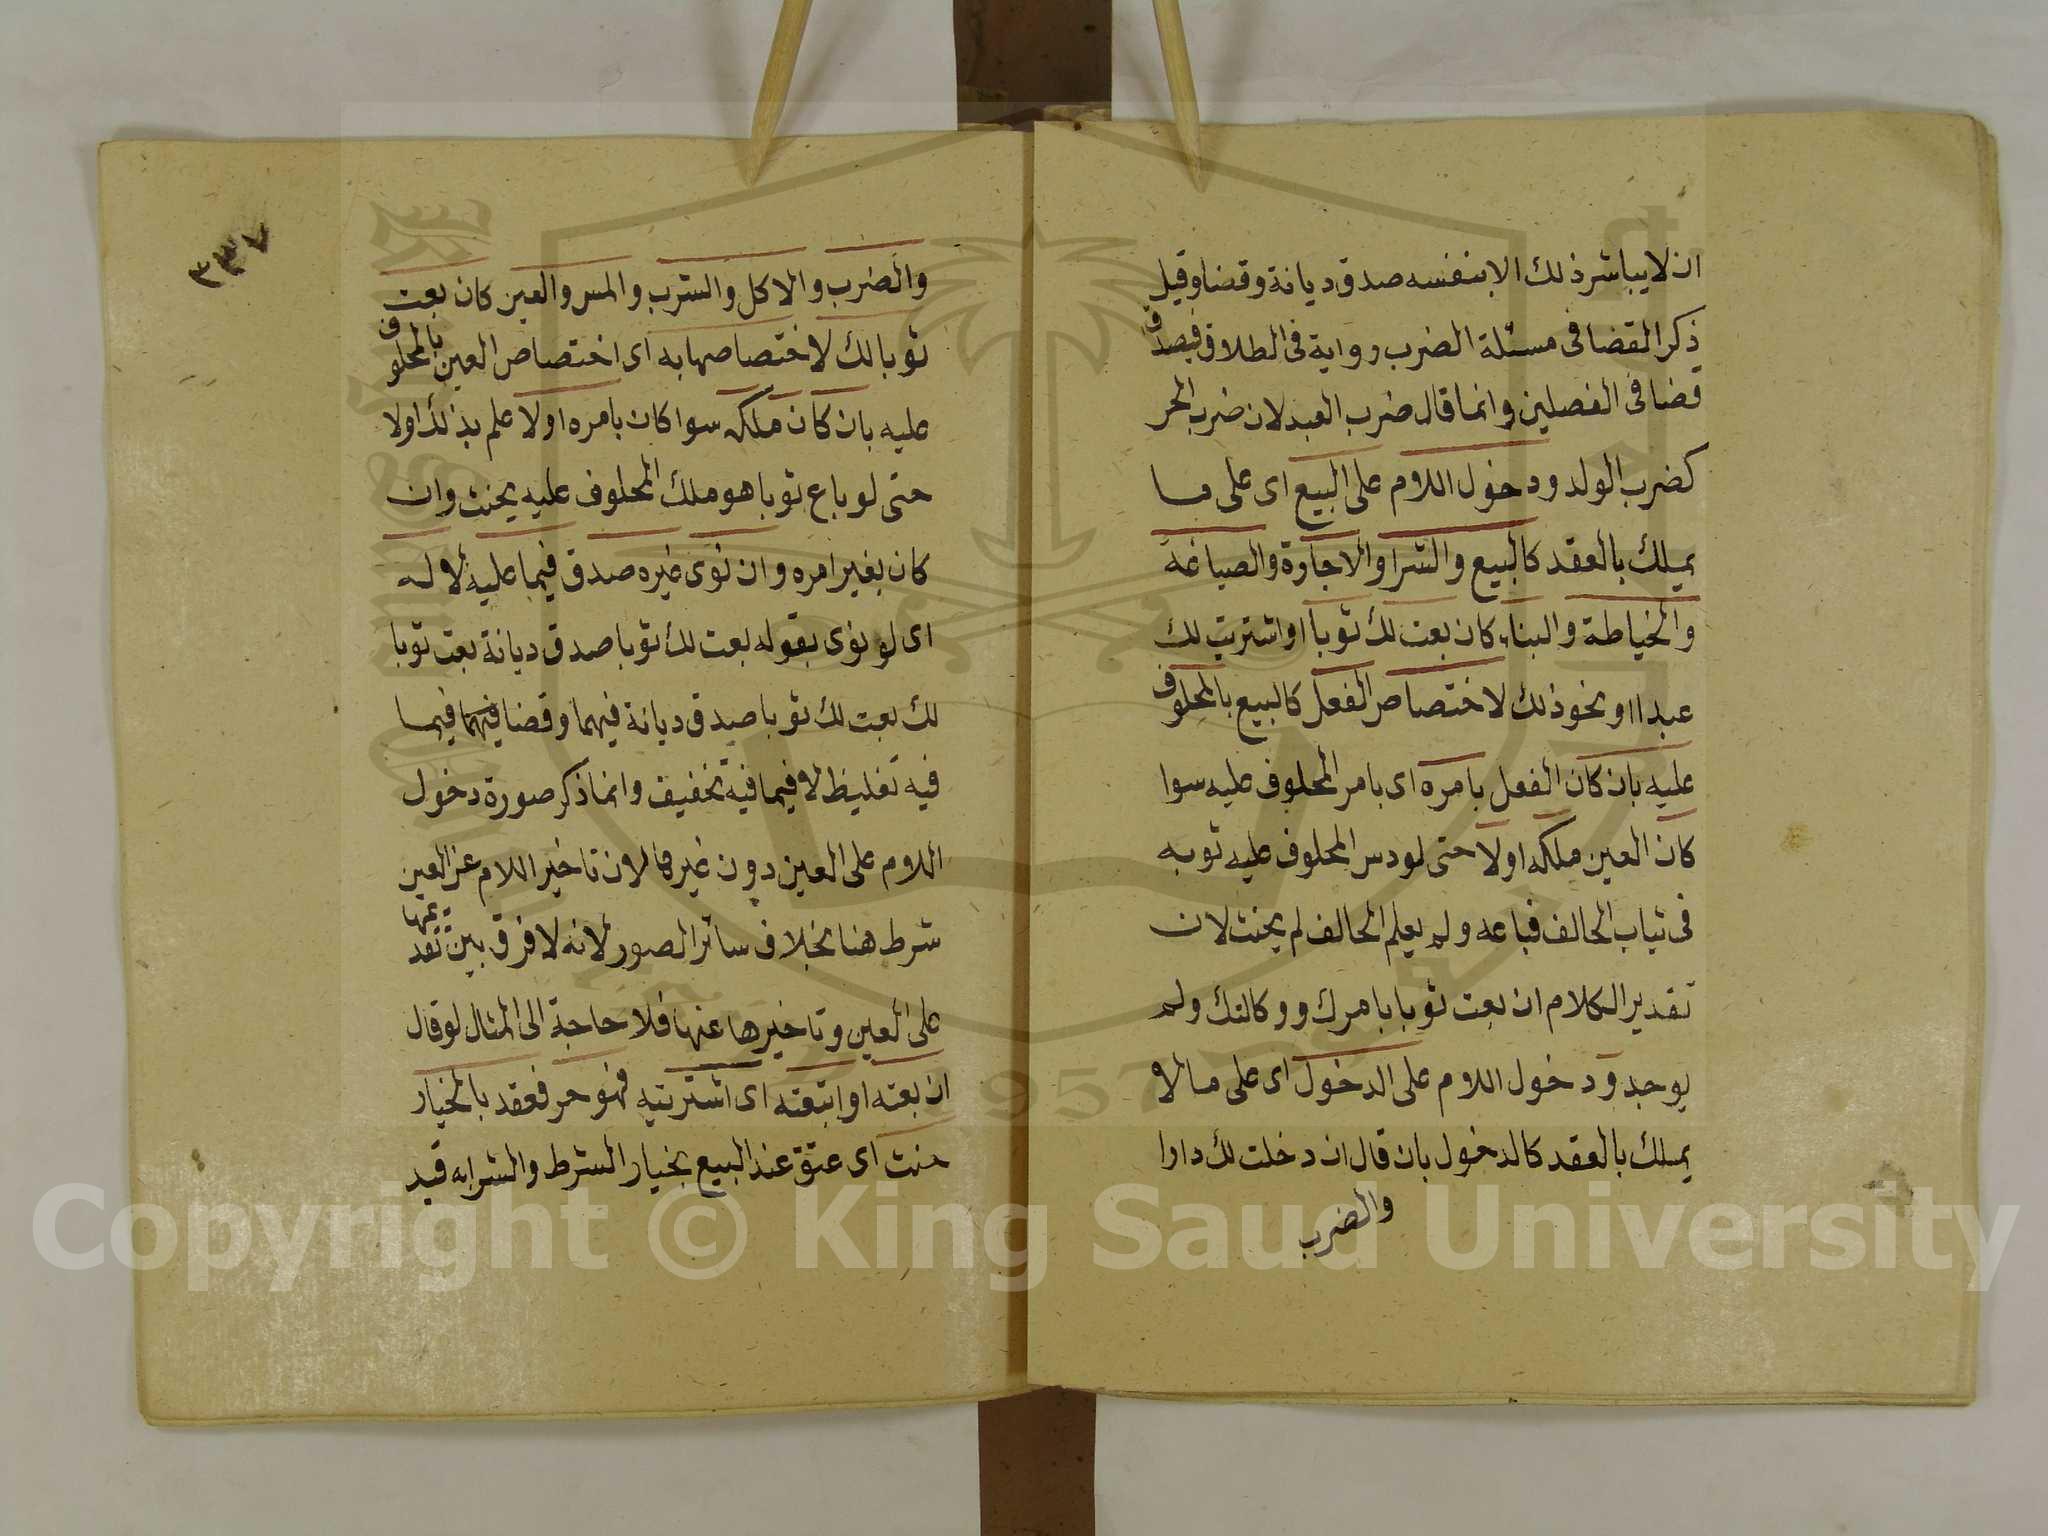 ان لا يباشر ذلك الا بنفسه صدق ديانة وقضا وقيل
ذكر القضا فى مسئلة الضرب رواية فى الطلاق فيصدق
قضا فى الفصلين وانما قال ضرب العبد لان ضرب الحر
كضرب الولد ودخول اللام على البيع اى على ما
يملك بالعقد كالبيع والشرا والاجارة والصياغة
والخياطة والبناء كان بعت لك ثوبا او اشتريت لك
عبدا او نحو ذلك لاختصاص الفعل كالبيع بالمحلوف
عليه بان كان الفعل بامره اى بامر المحلوف عليه سوا
كان العين ملكه اولا حتى لو دس المحلوف عليه ثوبه
فى ثياب الحالف فباعه ولم يعلم الحالف لم يحنث لان
تقدير الكلام ان بعت ثوبا بامرك ووكالتك ولم
يوجد ودخول اللام على الدخول اى على ما لا
يملك بالعقد كالدخول بان قال ان دخلت لك دارا
والضرب
٣٣٧
والضرب والاكل والشرب والمس والعين كان بعت
ثوبا لك لاختصاصها به اى اختصاص العين بالمحلوف
عليه بان كان ملكه سوا كان بامره اولا علم بذلك اولا
حتى لو باع ثوبا هو ملك المحلوف عليه يحنث وان
كان بغير امره وان نوى غيره صدق فيما عليه لا له
اى لو نوى بقوله بعت لك ثوبا صدق ديانة بعت ثوبا
لك بعت لك ثوبا صدق ديانة فيهما وقضا فيهما فيما
فيه تغليظ لا فيما فيه تخفيف وانما ذكر صورة دخول
اللام على العين دون غيرها لان تاخير اللام عن العين
شرط هنا بخلاف سائر الصور لانه لا فرق بين تقديمها
على العين وتاخيرها عنها فلا حاجة الى المثال لو قال
ان بعته او ابتعته اى اشتريته فهو حر فعقد بالخيار
حنث اى عتق عند البيع بخيار الشرط والشرا به قيد
Copyright © King Saud University
1957